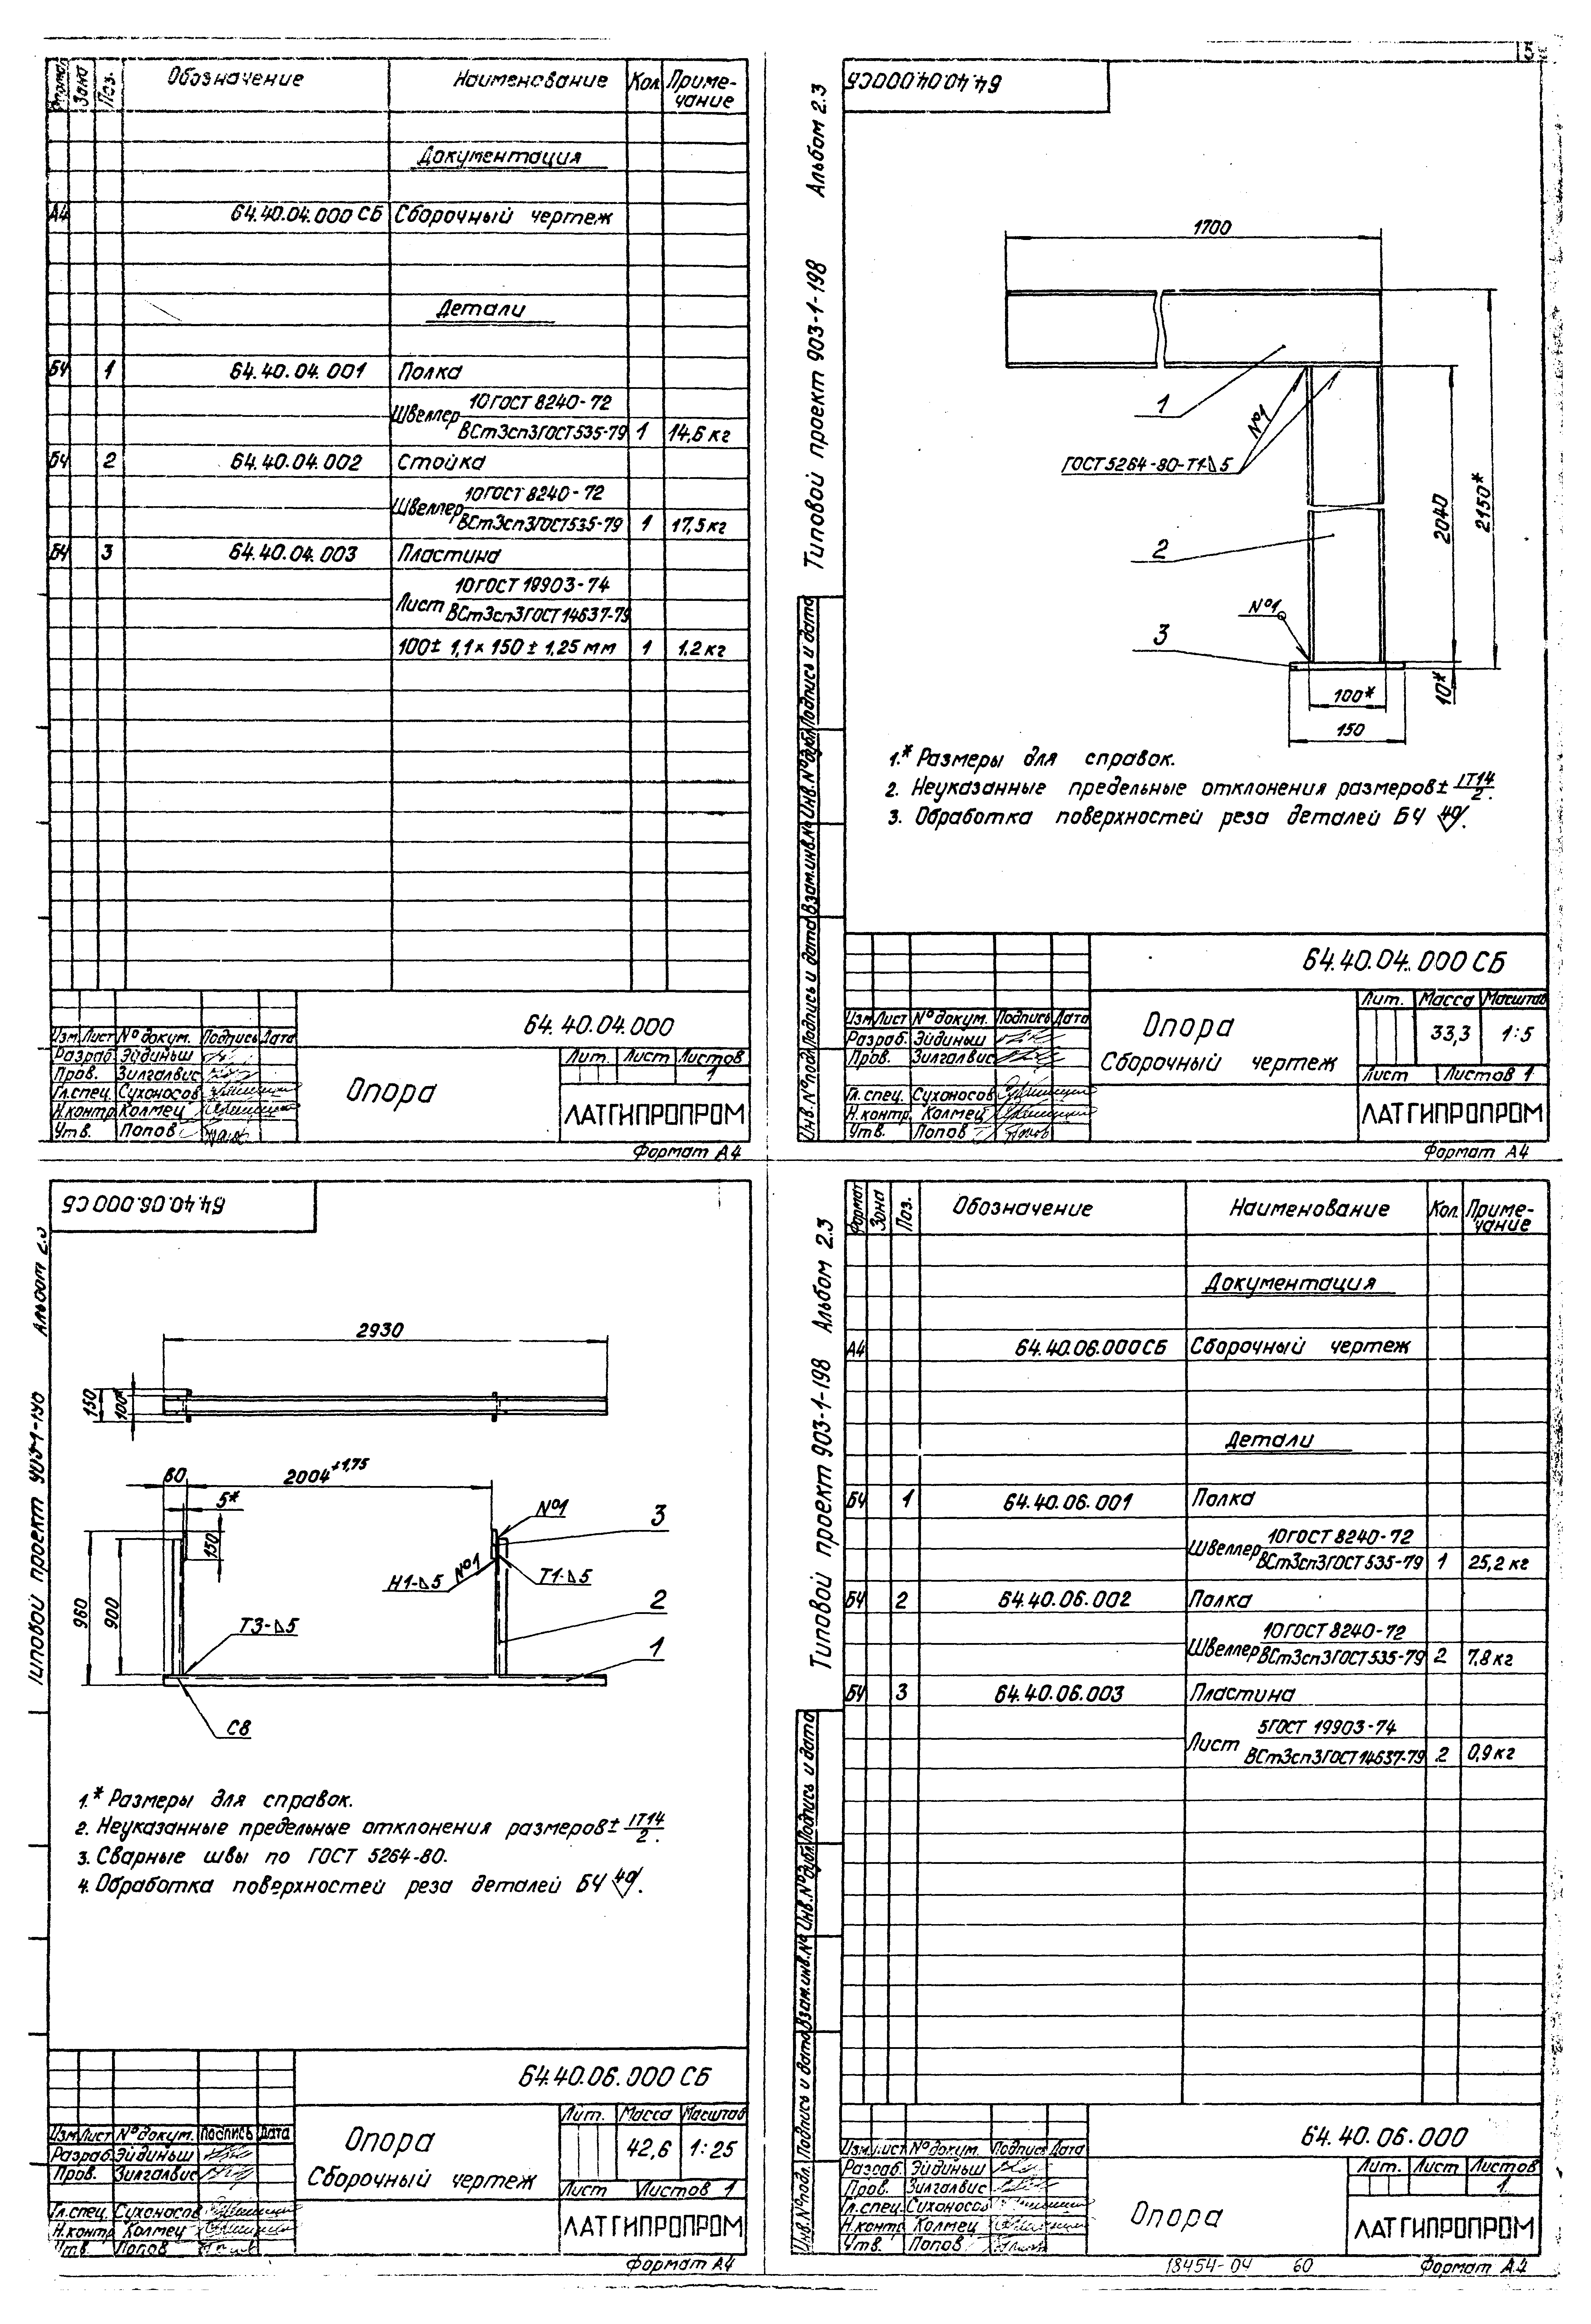 Зона
Поз.
Обозначение
Наименование
Кол
Приме-
чание
Документация
А4 64.40.04.000 СБ Сборочный чертеж
Детали
БЧ 1 64.40.04.001 Полка
Швеллер 10 ГОСТ 8240-72
ВСт3сп3 ГОСТ 535-79 1 14,6 кг
БЧ 2 64.40.04.002 Стойка
Швеллер 10 ГОСТ 8240-72
ВСт3сп3 ГОСТ 535-79 1 17,5 кг
БЧ 3 64.40.04.003 Пластина
Лист 10 ГОСТ 19903-74
ВСт3сп3 ГОСТ 14637-79
100± 1,1 × 150 ± 1,25 мм 1 1.2 кг
64.40.04.000
Изм Лист № докум. Подпись Дата
Разраб. Эйдиньш
Пров. Зилгалвис
Гл.спец. Сухоносов
Н.контр. Колмец
Утв. Попов
Опора
Лит. Лист Листов
1
ЛАТГИПРОПРОМ
Формат А4
64.40.04.000СБ
Типовой проект 903-1-198 Альбом 2.3
1700
1
№1
ГОСТ 5264-80-Т1-⊿5
2
2040
2150*
№1
3
10*
100*
150
1.* Размеры для справок.
2. Неуказанные предельные отклонения размеров ± IT14/2.
3. Обработка поверхностей реза деталей БЧ 40/.
Инв.№подл. Подпись и дата Взам.инв.№ Инв.№дубл. Подпись и дата
64.40.04.000 СБ
Изм Лист № докум. Подпись Дата
Разраб. Эйдиньш
Пров. Зилгалвис
Гл.спец. Сухоносов
Н.контр. Колмец
Утв. Попов
Опора
Сборочный чертеж
Лит. Масса Масштаб
33,3 1:5
Лист Листов 1
ЛАТГИПРОПРОМ
Формат А4
64.40.06.000 СБ
Типовой проект 903-1-198 Альбом 2.3
2930
150
100*
80
2004 ±1,75
5*
150
№1
3
Н1-⊿5 №1
Т1-⊿5
960
900
2
Т3-⊿5
1
С8
1.* Размеры для справок.
2. Неуказанные предельные отклонения размеров ± IT14/2.
3. Сварные швы по ГОСТ 5264-80.
4. Обработка поверхностей реза деталей БЧ 40/.
64.40.06.000 СБ
Изм Лист № докум. Подпись Дата
Разраб. Эйдиньш
Пров. Зилгалвис
Гл.спец. Сухоносов
Н.контр. Колмец
Утв. Попов
Опора
Сборочный чертеж
Лит. Масса Масштаб
42,6 1:25
Лист Листов 1
ЛАТГИПРОПРОМ
Формат А4
Типовой проект 903-1-198 Альбом 2.3
Формат
Зона
Поз.
Обозначение
Наименование
Кол.
Приме-
чание
Документация
А4 64.40.06.000СБ Сборочный чертеж
Детали
БЧ 1 64.40.06.001 Полка
Швеллер 10 ГОСТ 8240-72
ВСт3сп3 ГОСТ 535-79 1 25,2 кг
БЧ 2 64.40.06.002 Полка
Швеллер 10 ГОСТ 8240-72
ВСт3сп3 ГОСТ 535-79 2 7,8 кг
БЧ 3 64.40.06.003 Пластина
Лист 5 ГОСТ 19903-74
ВСт3сп3 ГОСТ 14637-79 2 0,9 кг
Инв.№подл. Подпись и дата Взам.инв.№ Инв.№дубл. Подпись и дата
64.40.06.000
Изм Лист № докум. Подпись Дата
Разраб. Эйдиньш
Пров. Зилгалвис
Гл.спец. Сухоносов
Н.контр. Колмец
Утв. Попов
Опора
Лит. Лист Листов
1
ЛАТГИПРОПРОМ
18454-04 60
Формат А4